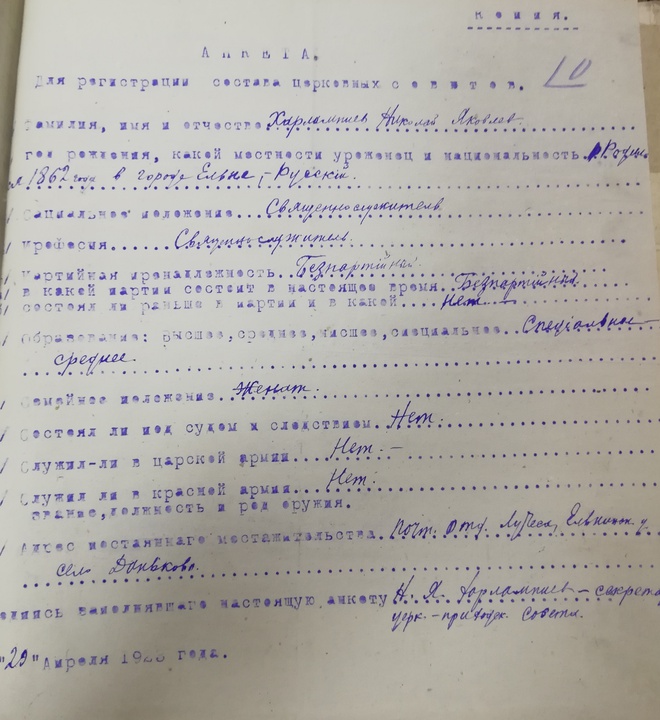 Копия.
АНКЕТА.
Для регистрации состава церковных советов. 10
Фамилия, имя и отчество Харлампиев Николай Яковлев.
год рождения, какой местности уроженец и национальность. Родил
ся 1862 года в городе Ельне, Русскій.
Социальное положение..... Священнослужитель
профессия...... Священнослужитель.
Партийная принадлежность. Безпартійный.
в какой партии состоит в настоящее время. Безпартійный.
состоял ли раньше в партии и в какой.... Нет. —
Образование: высшее, среднее, низшее, специальное.. Спеціальное
среднее.
Семейное положение. Женат.
Состоял ли под судом и следствием. Нет.
Служил-ли в царской армии... Нет. —
Служил ли в красной армии... Нет.
звание, должность и род оружия.
Адрес постоянного местожительства. Почт. отд. Лучеса, Ельнинск. у.
село Даньково.
одпись заполнявшего настоящую анкету Н. Я. Харлампиев — секрета
церк. - приходск. Совета.
"29" Апреля 192 года.